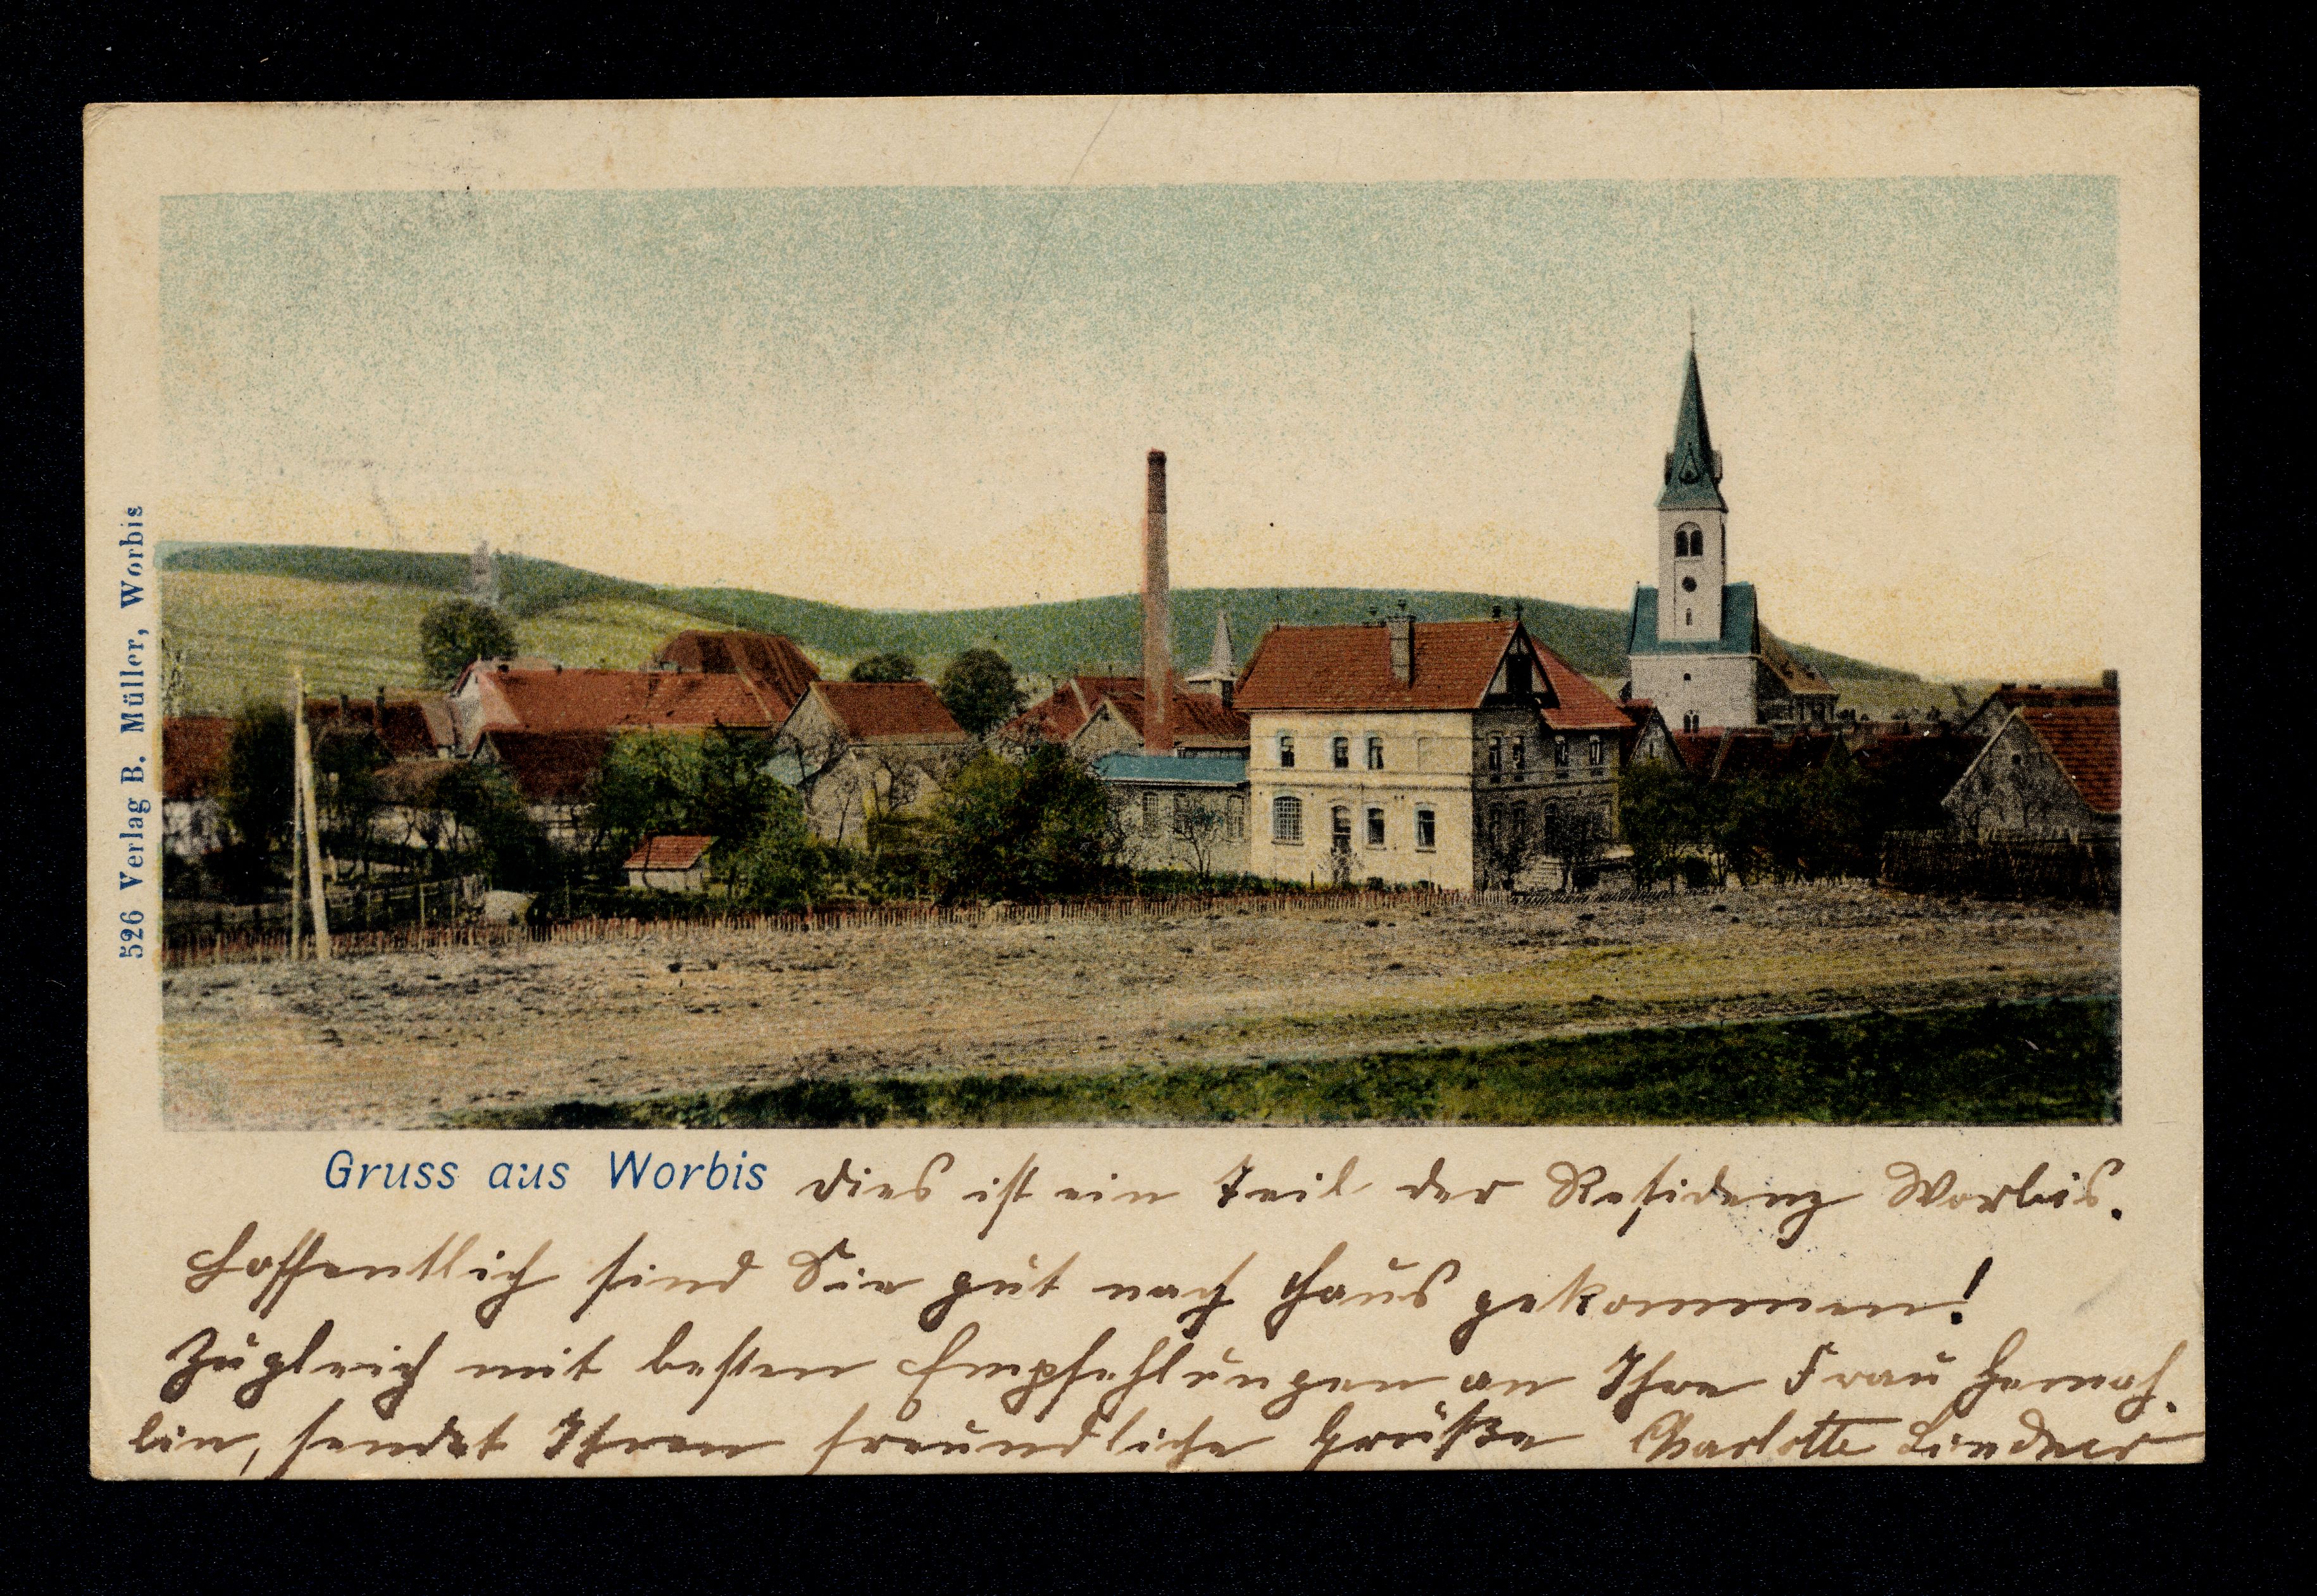 526 Verlag B. Müller, Worbis
Gruss aus Worbis dies ist ein Teil der Residenz Worbis.
Hoffentlich sind Sie gut nach Haus gekommen!
Zugleich mit besten Empfehlungen an Ihre Frau Gemah.
lin, sendet Ihnen freundliche Grüße Charlotte Lindner